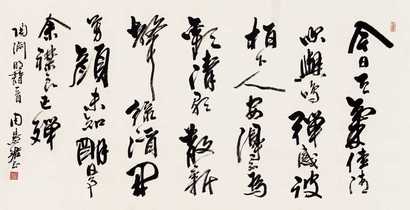 今日天氣佳清
吹與鳴彈感彼
柏下人安得不為
歡清歌散新
聲綠酒開
芳顏未知明日事
余襟良已殫
陶淵明詩一首 周慧珺